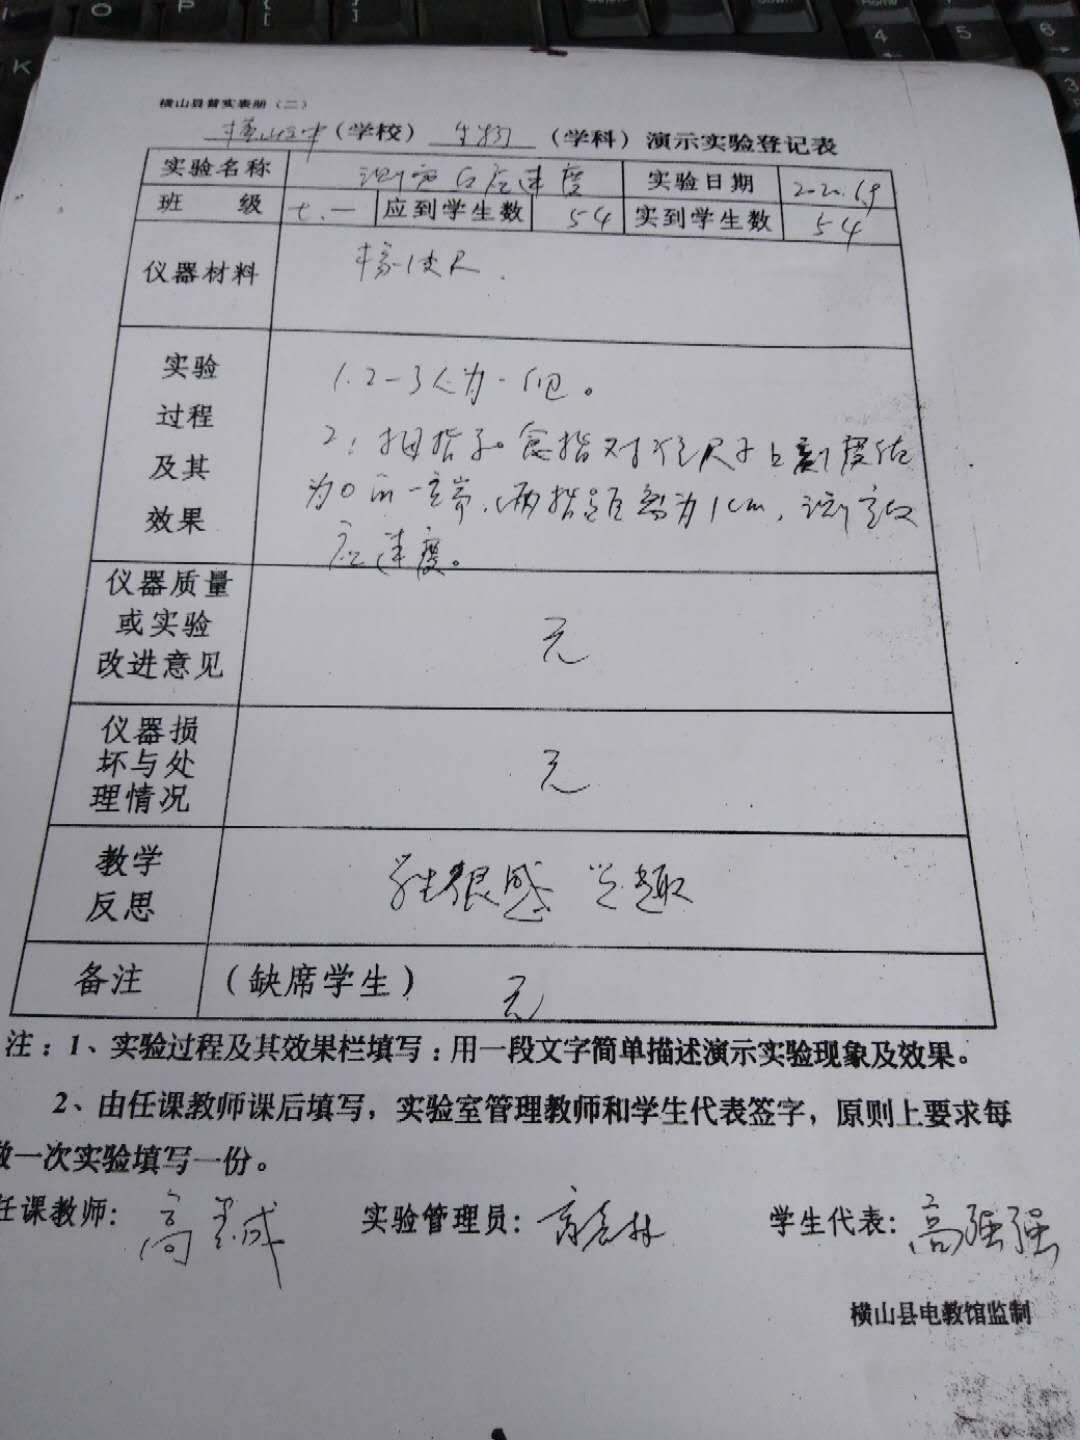 横山县普实表册（二）
横山四中（学校） 生物 （学科）演示实验登记表
实验名称 测定反应速度 实验日期 2020.6.9
班 级 七.一 应到学生数 54 实到学生数 54
仪器材料
尺.
实验
过程
及其
效果
1.2-3人为一组。
2.拇指和食指对准尺子上刻度值
为0的一端,两指距离为1cm,测定反
应速度。
仪器质量
或实验
改进意见
无
仪器损
坏与处
理情况
无
教学
反思
学生很感兴趣
备注
（缺席学生） 无
注：1、实验过程及其效果栏填写：用一段文字简单描述演示实验现象及效果。
2、由任课教师课后填写，实验室管理教师和学生代表签字，原则上要求每
做一次实验填写一份。
任课教师: 高 成 实验管理员: 学生代表: 高强强
横山县电教馆监制